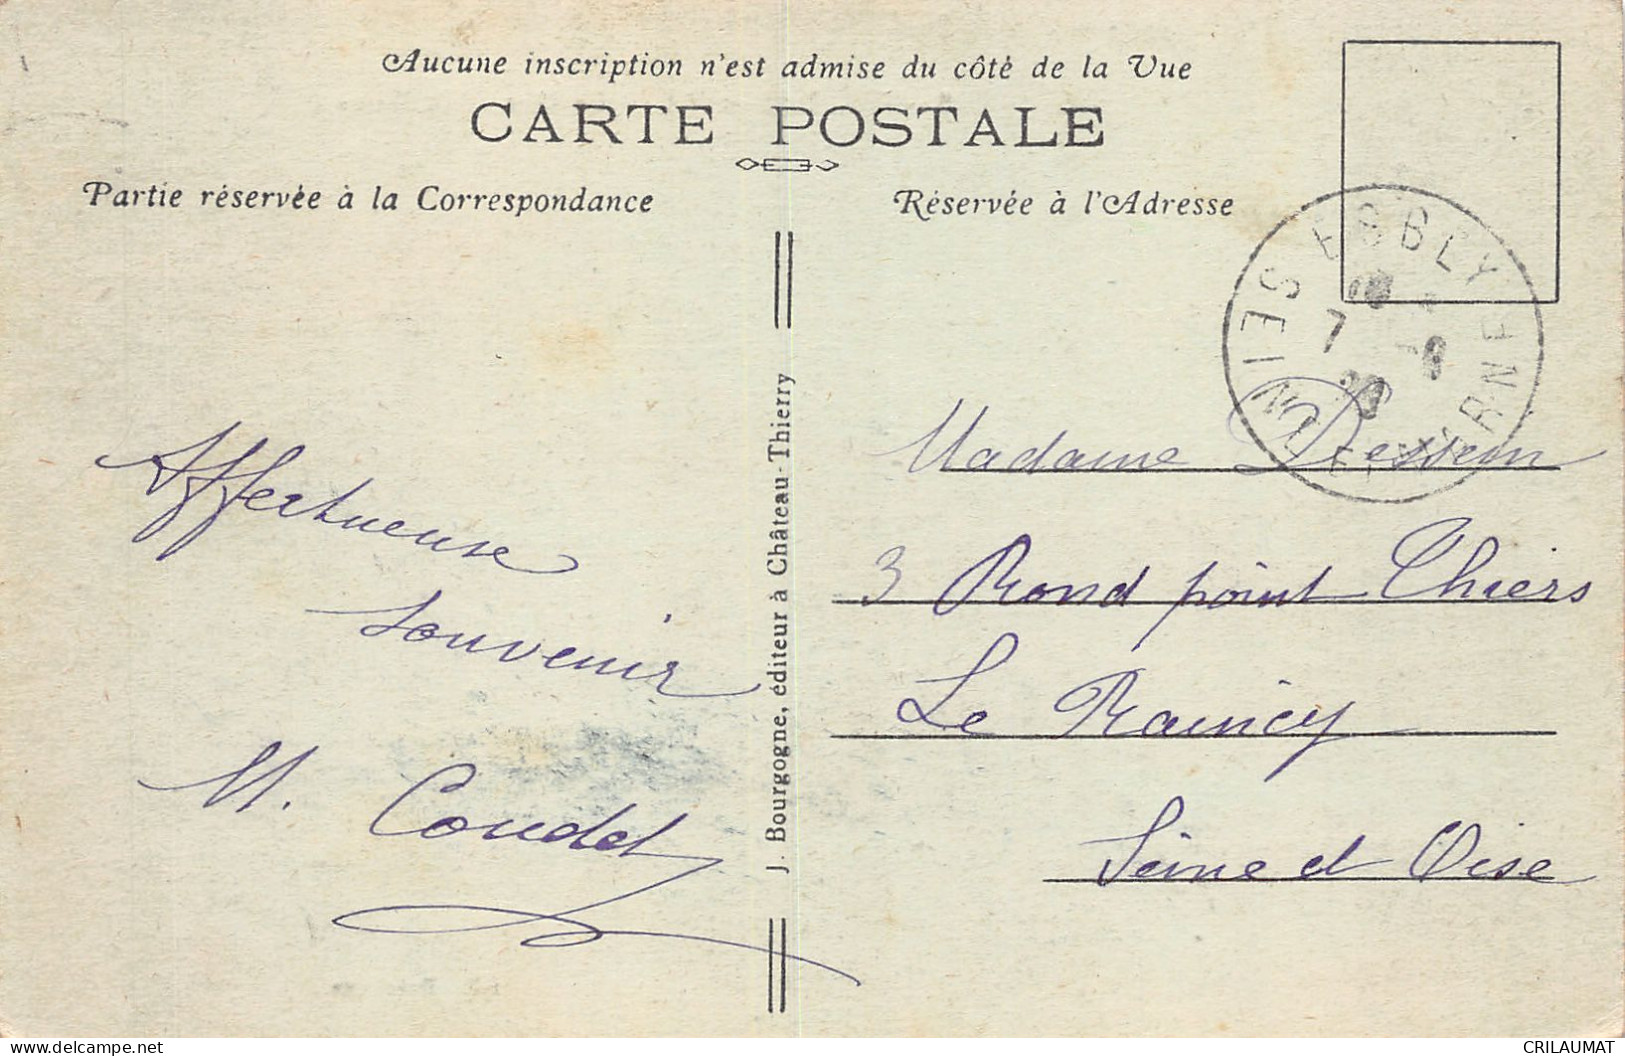 Aucune inscription n'est admise du côté de la Vue
CARTE POSTALE
Partie réservée à la Correspondance
Réservée à l'Adresse
ESBLY
SEINE ET MARNE
7
Affectueux
Souvenir
M. Coudel
J. Bourgogne, éditeur à Château-Thierry
Madame
3 Rond point Thiers
Le Raincy
Seine et Oise
CRILAUMAT